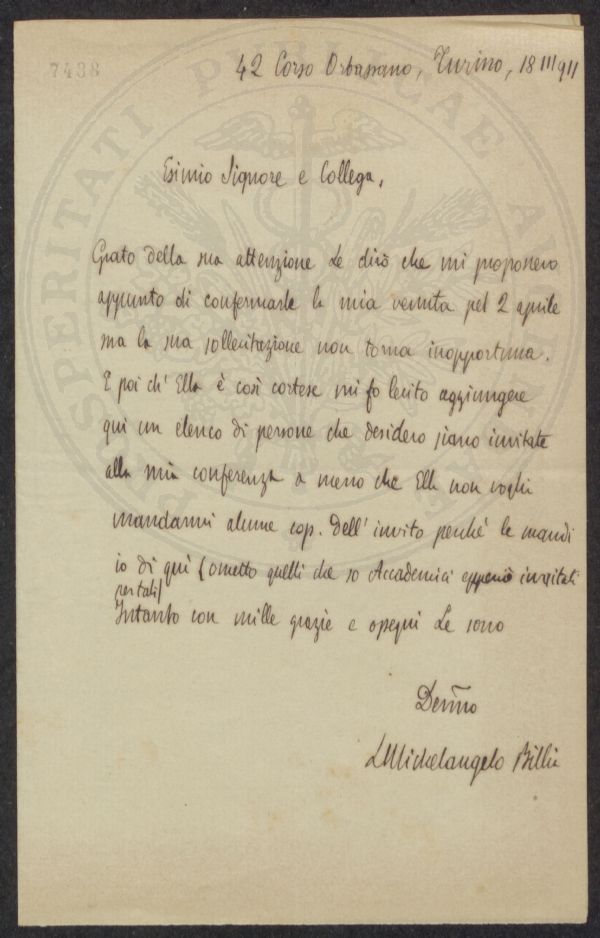 7438
42 Corso Orbassano, Torino, 18 III 911
Esimio Signore e Collega,
Grato della sua attenzione Le dirò che mi proponevo
appunto di confermarle la mia venuta pel 2 aprile
ma la sua sollecitazione non torna inopportuna.
E poi ch' Ella è così cortese mi fo lecito aggiungere
qui un elenco di persone che desidero siano invitate
alla mia conferenza a meno che Ella non voglia
mandarmi alcune cop. dell' invito perchè le mandi
io di qui (ometto quelli che so Accademici e invitati
per tali)
Intanto con mille grazie e ossequi Le sono
Dev̄mo
LMichelangelo Billia
PROSPERITATI PUBLICAE AUGENDAE